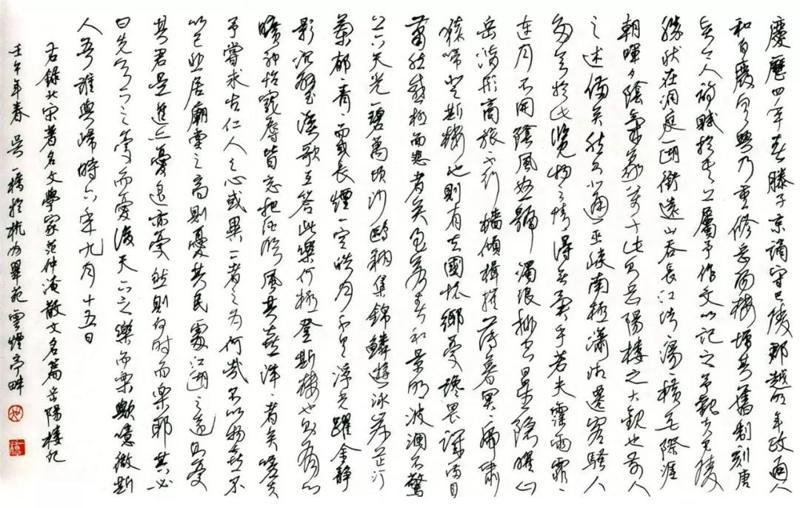 慶歷四年春滕子京謫守巴陵郡越明年政通人
和百廢具興乃重修岳陽樓增其舊制刻唐
賢今人詩賦於其上屬予作文以記之予觀夫巴陵
勝狀在洞庭一湖銜遠山吞長江浩浩湯湯橫無際涯
朝暉夕陰氣象萬千此則岳陽樓之大觀也前人
之述備矣然則北通巫峽南極瀟湘遷客騷人
多會於此覽物之情得無異乎若夫霪雨霏霏
連月不開陰風怒號濁浪排空星隱曜山
岳潛形商旅不行檣傾楫摧薄暮冥冥虎嘯
猿啼登斯樓也則有去國懷鄉憂讒畏譏滿目
蕭然感極而悲者矣至若春和景明波瀾不驚
上下天光一碧萬頃沙鷗翔集錦鱗游泳岸芷汀
蘭郁郁青青而或長煙一空皓月千里浮光躍金靜
影沉璧漁歌互答此樂何極登斯樓也則有心
曠神怡寵辱皆忘把酒臨風其喜洋洋者矣嗟夫
予嘗求古仁人之心或異二者之為何哉不以物喜不
以己悲居廟堂之高則憂其民處江湖之遠則憂
其君是進亦憂退亦憂然則何時而樂耶其必
曰先天下之憂而憂後天下之樂而樂歟噫微斯
人吾誰與歸時六年九月十五日
右錄北宋著名文學家范仲淹散文名篇岳陽樓記
壬午年春吳一橋於杭州翠苑雲煙亭畔